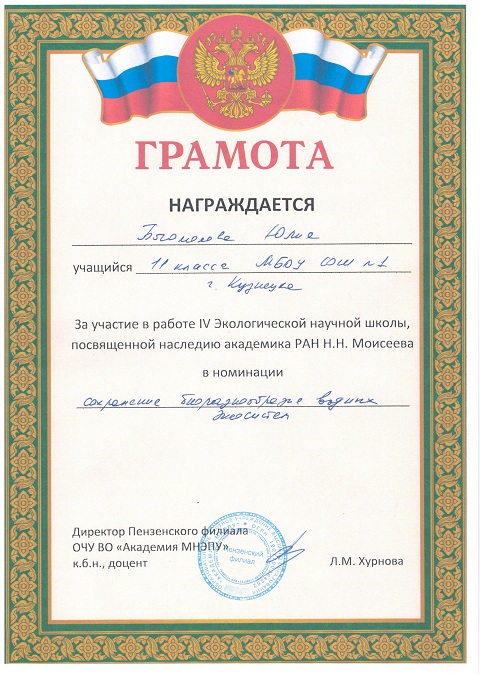 ГРАМОТА
НАГРАЖДАЕТСЯ
Богомолова Юлия
учащийся 11 класса МБОУ СОШ №1
г. Кузнецка
За участие в работе IV Экологической научной школы,
посвященной наследию академика РАН Н.Н. Моисеева
в номинации
сохранение биоразнообразие водных
экосистем
Директор Пензенского филиала
ОЧУ ВО «Академия МНЭПУ»
к.б.н., доцент
Пензенский
филиал
Л.М. Хурнова